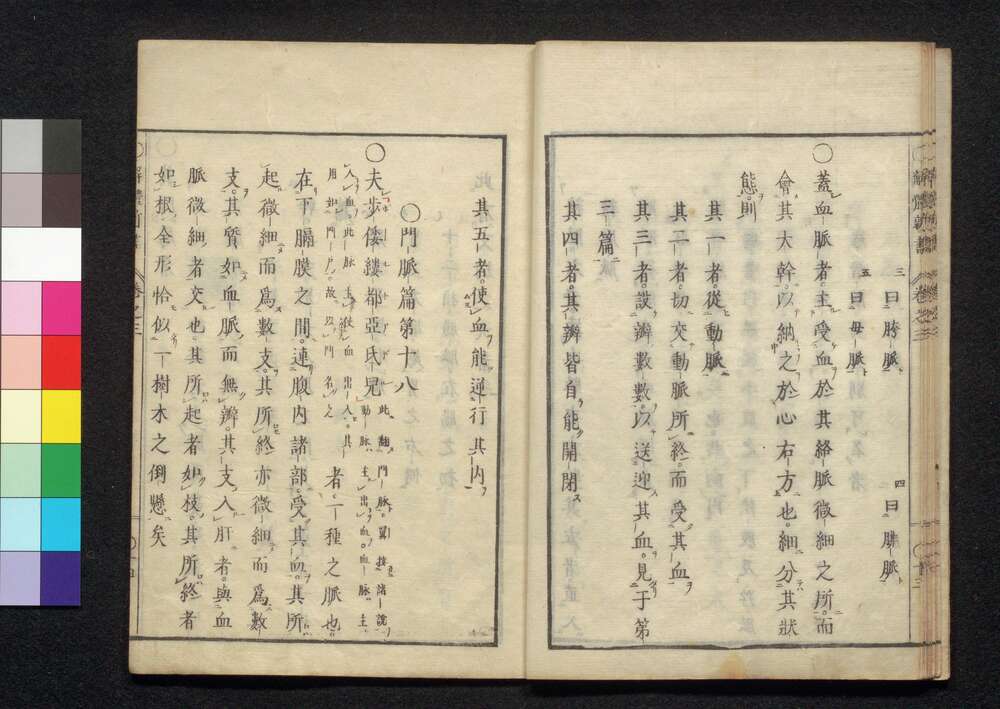 三曰胯脈 四曰腓脈
五曰毋脈
○蓋血脈者主受血於其絡脈微細之所而
會其大幹以納之於心右方也細分其狀
態則
其一者從動脈
其二者切交動脈所終而受其血
其三者設辨數數以送迎其血見于第
三篇
其四者其辨皆自能開閉
其五者使血能逆行其内
○門脈篇第十八
○夫步倭縷都亞氐兒此翻門脈翼按諸說動脈主出血血脈主
入血此脈主使血出入其用如門戶故以門名之者一種之脈也
在下膈膜之間連腹内諸部受其血其所
起微細而爲數支其所終亦微細而爲數
支其質如血脈而無辨其支入肝者與血
脈微細者交也其所起者如枝其所終者
如根全形恰似一樹木之倒懸矣